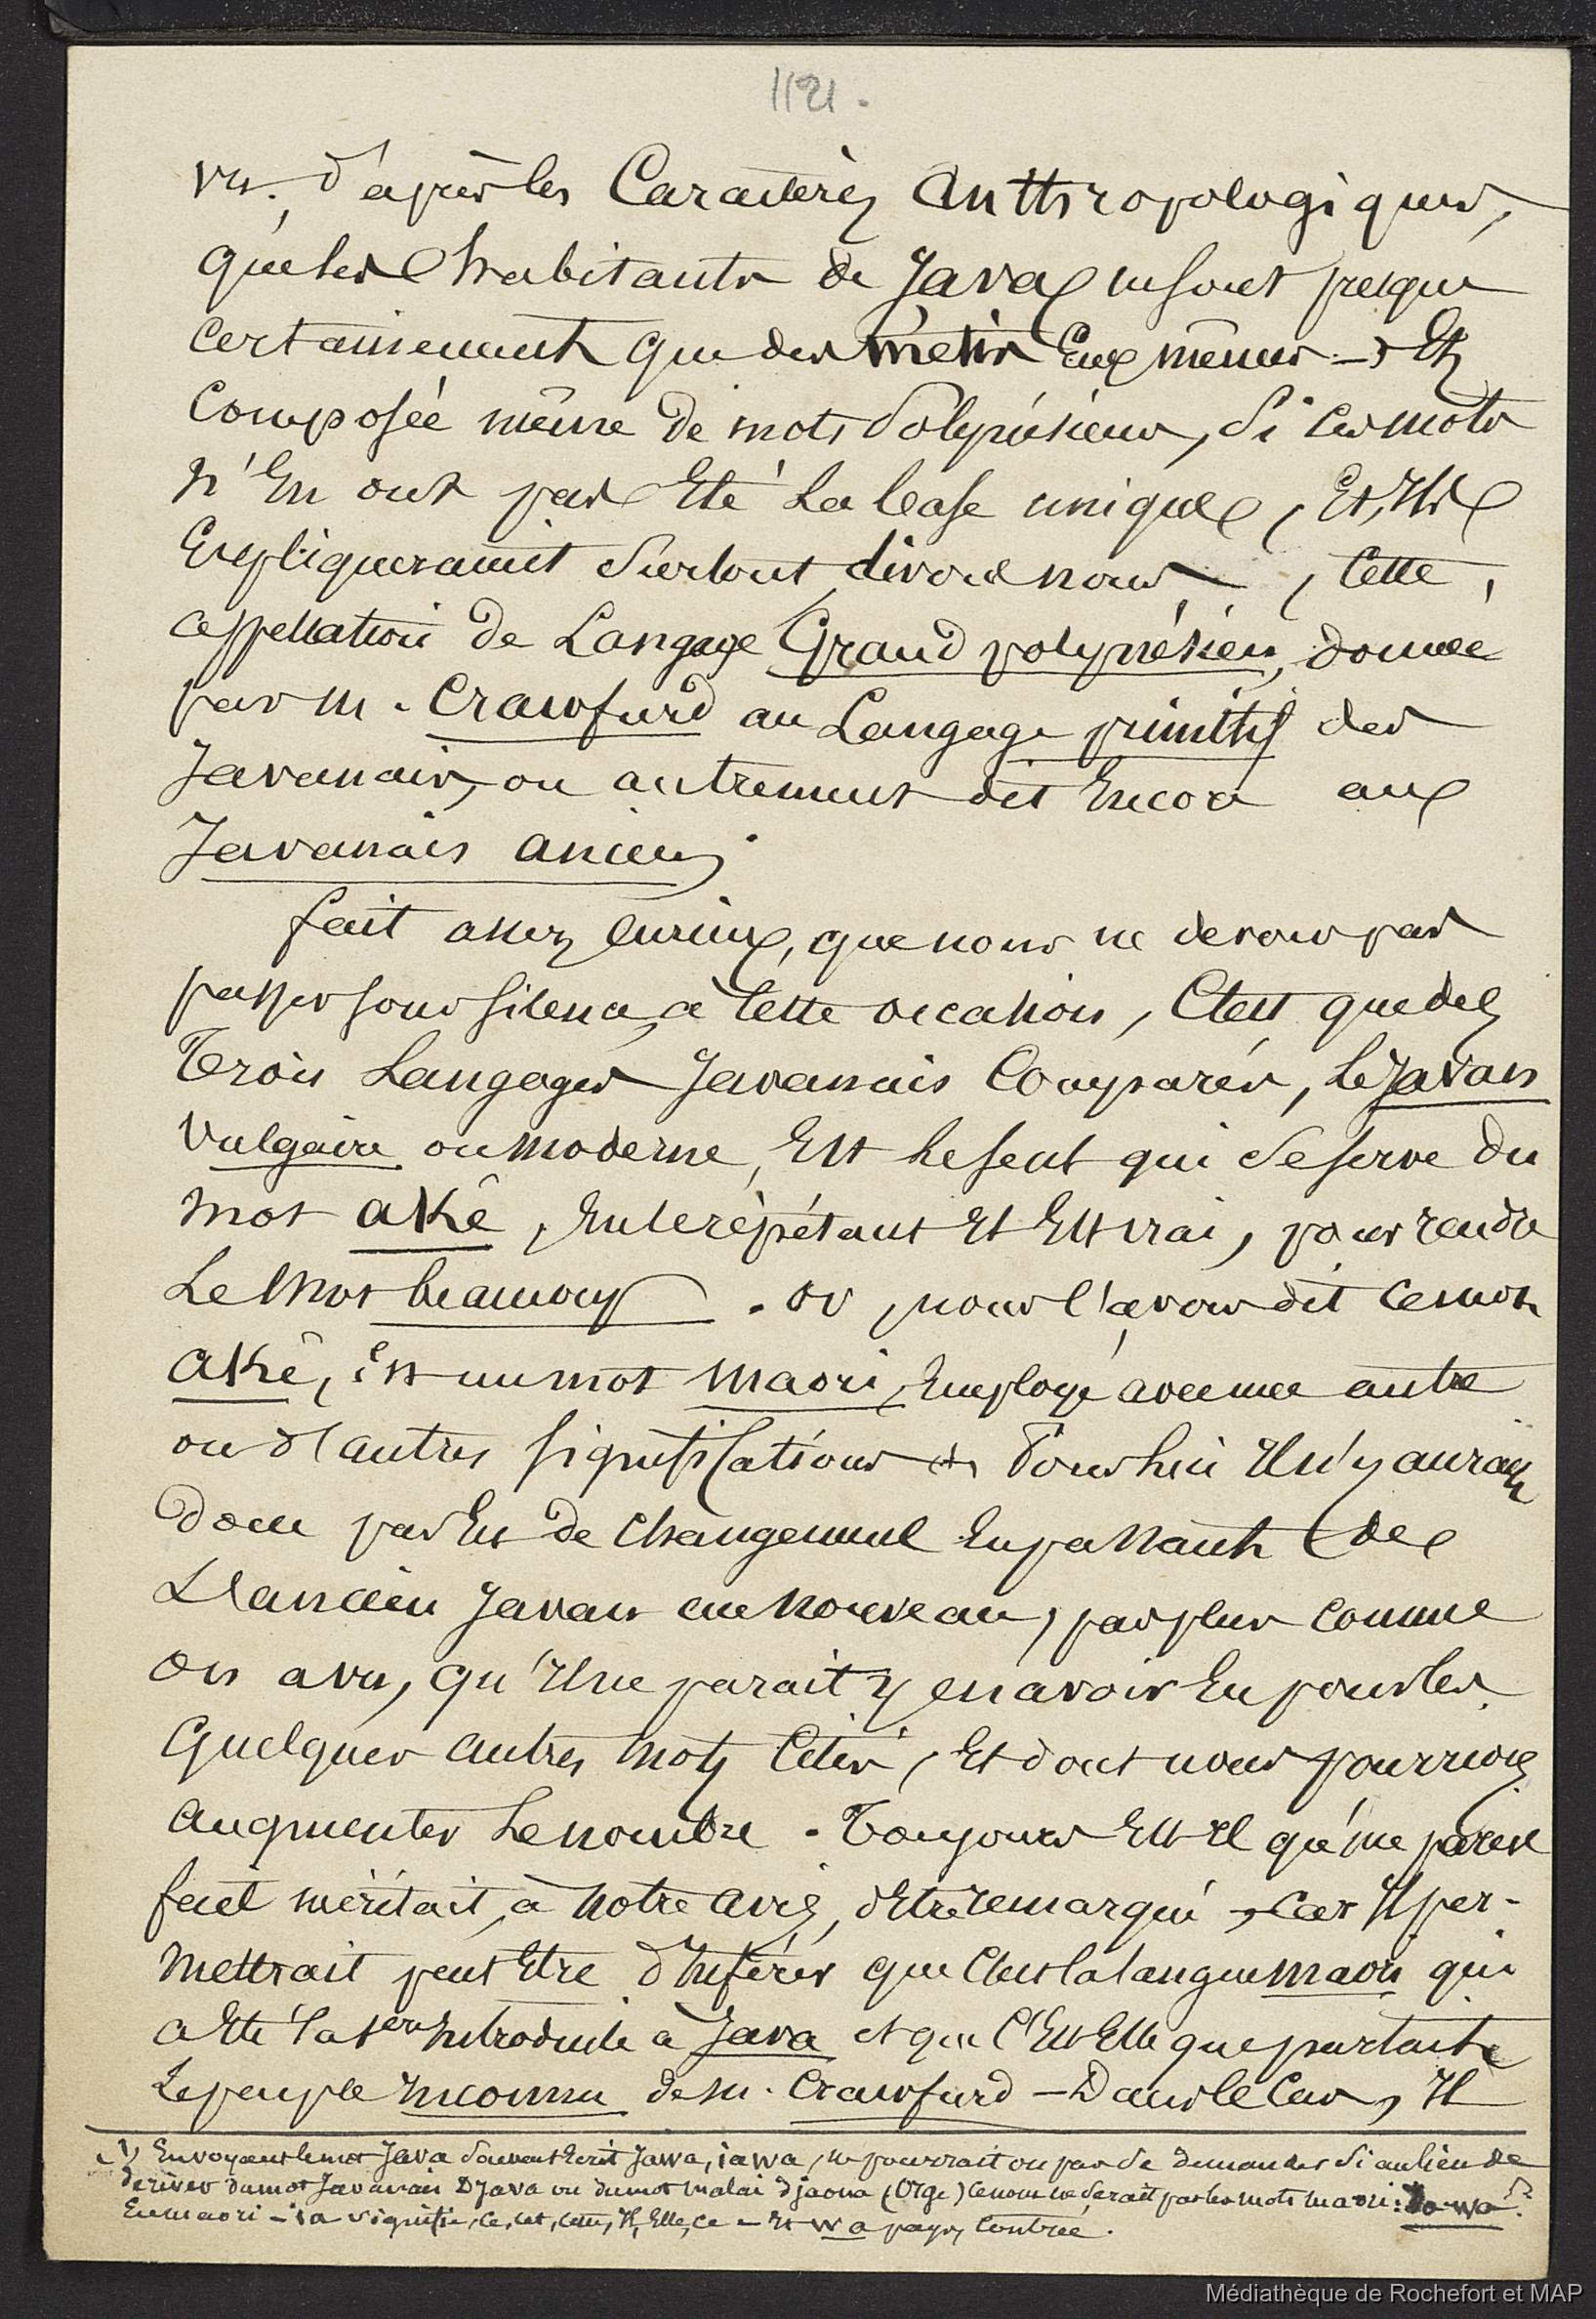 1121.
vu, d'après les Caractères anthropologiques,
que les habitants de Java ne sont presque
certainement que des métis Eux mêmes - Et
Composée même de mots Polynésiens, Si ces mots
n'En ont pas Eté La base unique, Et, Ils
Expliqueraient Surtout, disons nous, Cette
appellation de Langage Grand polynésien, donnée
par M. Crawfurd au Langage primitif des
Javanais, ou autrement dit Encore aux
Javanais anciens
fait assez Curieux, que nous ne devons pas
passer sous silence, à Cette occasion, C'est que des
Trois Langages Javanais Comparés, Le Javan
Vulgaire ou moderne, Est Le seul qui Se serve du
mot aké, En le répétant Il Est vrai, pour rendre
Le Mot beaucoup. or, nous l'avons dit Ce mot
aké, Est un mot maori, Employé avec une autre
ou d'autres significations Pour lui Il n'y aurait
donc pas Eu de Changement En passant de
L'ancien Javan au nouveau, pas plus Comme
on a vu, qu'Il ne parait y en avoir Eu pour les
Quelques autres mots Cités, Et dont nous pourrions
augmenter Le nombre. Toujours Est-Il qu'un pareil
fait méritait, à notre avis, d'Etre remarqué, Car Il per-
mettrait peut Etre d'Inférer que C'est la langue maori qui
a Eté la 1ère Introduite à Java et que C'Est Elle que parlait
Le peuple Inconnu de M. Crawfurd - Dans le Cas, Il
(1) En voyant le mot Java Souvent Ecrit Jawa, iawa, ne pourrait on pas Se demander Si au lieu de
dériver du mot Javanais Djava ou du mot malai djaoua (Orge) Ce nom ne Serait pas les mots maori: Ia-wa?
En maori - ia signifie, Ce, Cet, Cette, Il, Elle, Ce - Et wa pays, Contrée.
Médiathèque de Rochefort et MAP